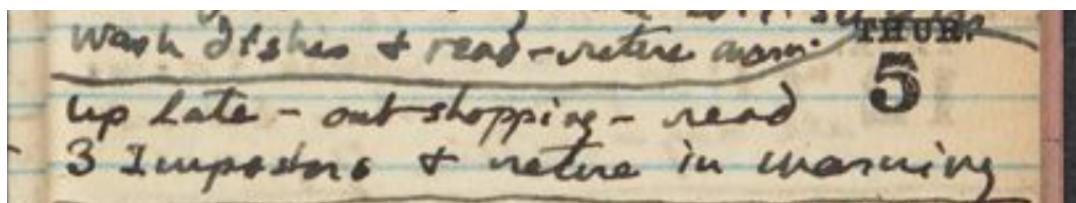 wash dishes & read - retire morn.
THUR.
5
up late - out shopping - read
3 Impostors & retire in morning